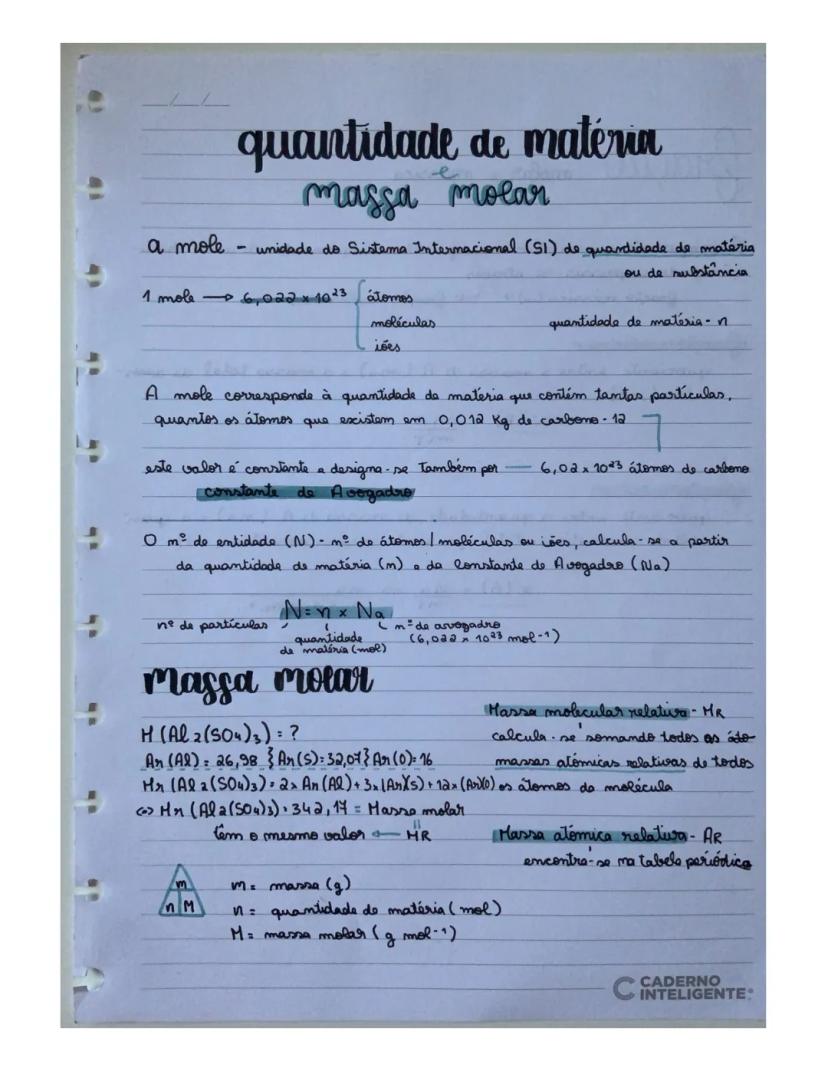 quantidade de matéria
e
massa molar
a mole - unidade do Sistema Internacional (SI) de quandidade de matéria
ou de substância
1 mole → 6,022 x 10²³ átomos
moléculas quantidade de matéria - n
iões
A mole corresponde à quantidade da matéria que contém tantas partículas,
quantos os átomos que existem em 0,012 Kg de carbono - 12
este valor é constante e designa-se também por — 6,02 x 10²³ átomos de carbono
constante de Avogadro
O nº de entidade (N) - nº de átomos/moléculas ou iões, calcula-se a partir
da quantidade de matéria (m) e da constante de Avogadro (Na)
N = n x Na
nº de partículas
quantidade de matéria (mol)
nº de avogadro (6,022 x 10²³ mol-¹)
massa molar
M (Al2(SO4)3) = ?
Ar (Al) = 26,98 } Ar (S) = 32,07 } Ar (O) = 16
Mr (Al2(SO4)3) = 2 x Ar (Al) + 3 x (Ar)(S) + 12 x (Ar)(O)
⇔ Mr (Al2(SO4)3) = 342,17 = Massa molar
têm o mesmo valor ← MR
Massa molecular relativa - MR
calcula-se somando todos as
massas atómicas relativas de todos
os átomos da molécula
Massa atómica relativa - AR
encontra-se na tabela periódica
m
n M
m = massa (g)
n = quantidade de matéria (mol)
M = massa molar (g mol-¹)
CADERNO
INTELIGENTE